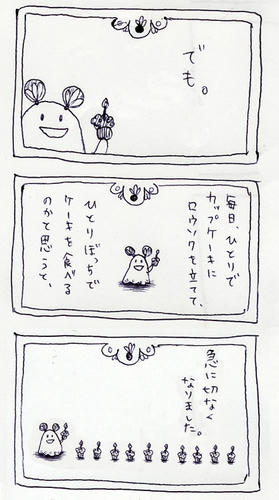 でも。
毎日、ひとりで
カップケーキに
ロウソクを立てて、
ひとりぼっちで
ケーキを食べる
のかと思うと、
急に切なく
なりました。